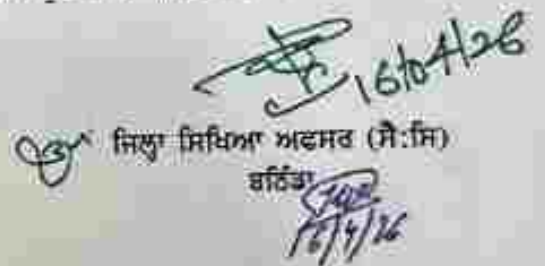 16/04/26
ਜਿਲ੍ਹਾ ਸਿਖਿਆ ਅਫਸਰ (ਸੈ:ਸਿ)
ਬਠਿੰਡਾ
16/4/26